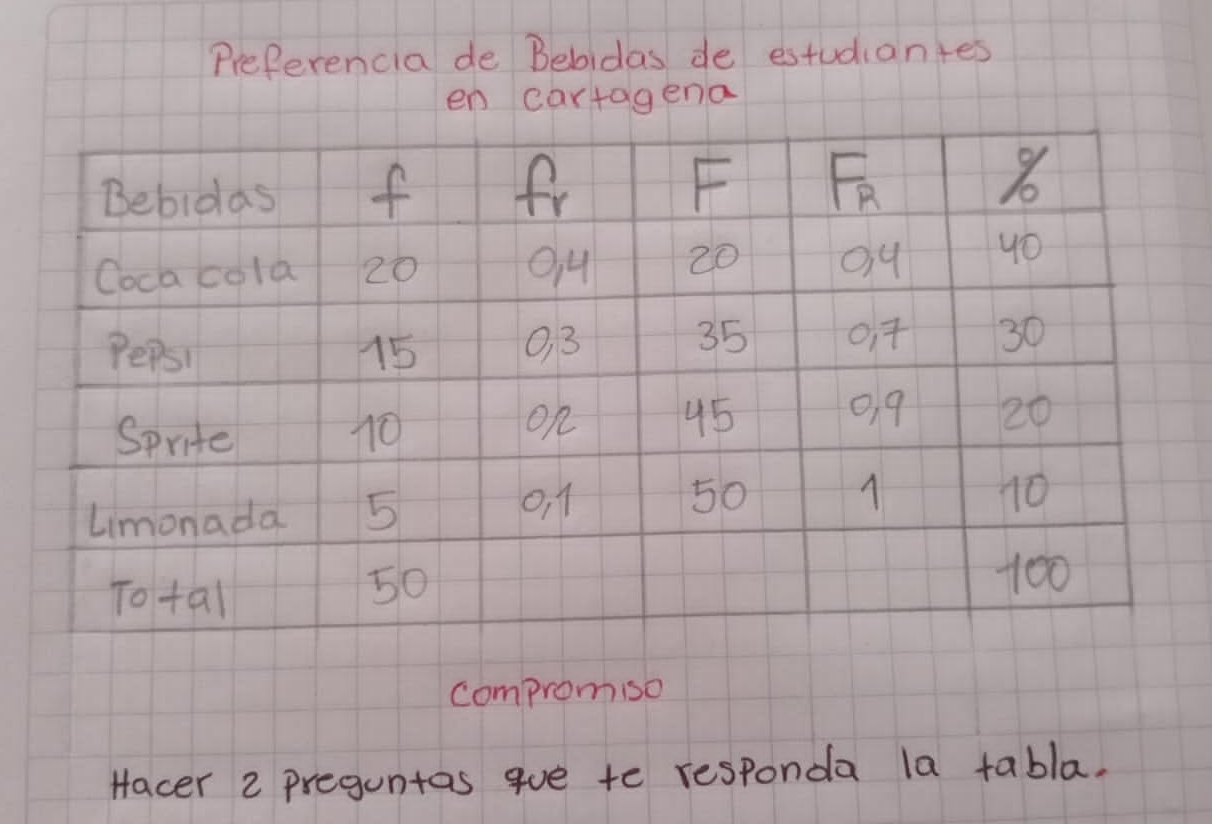 Preferencia de Bebidas de estudiantes
en cartagena
Bebidas f fr F FR %
Coca cola 20 0,4 20 0,4 40
Pepsi 15 0,3 35 0,7 30
Sprite 10 0,2 45 0,9 20
Limonada 5 0,1 50 1 10
Total 50 100
compromiso
Hacer 2 preguntas que te responda la tabla.